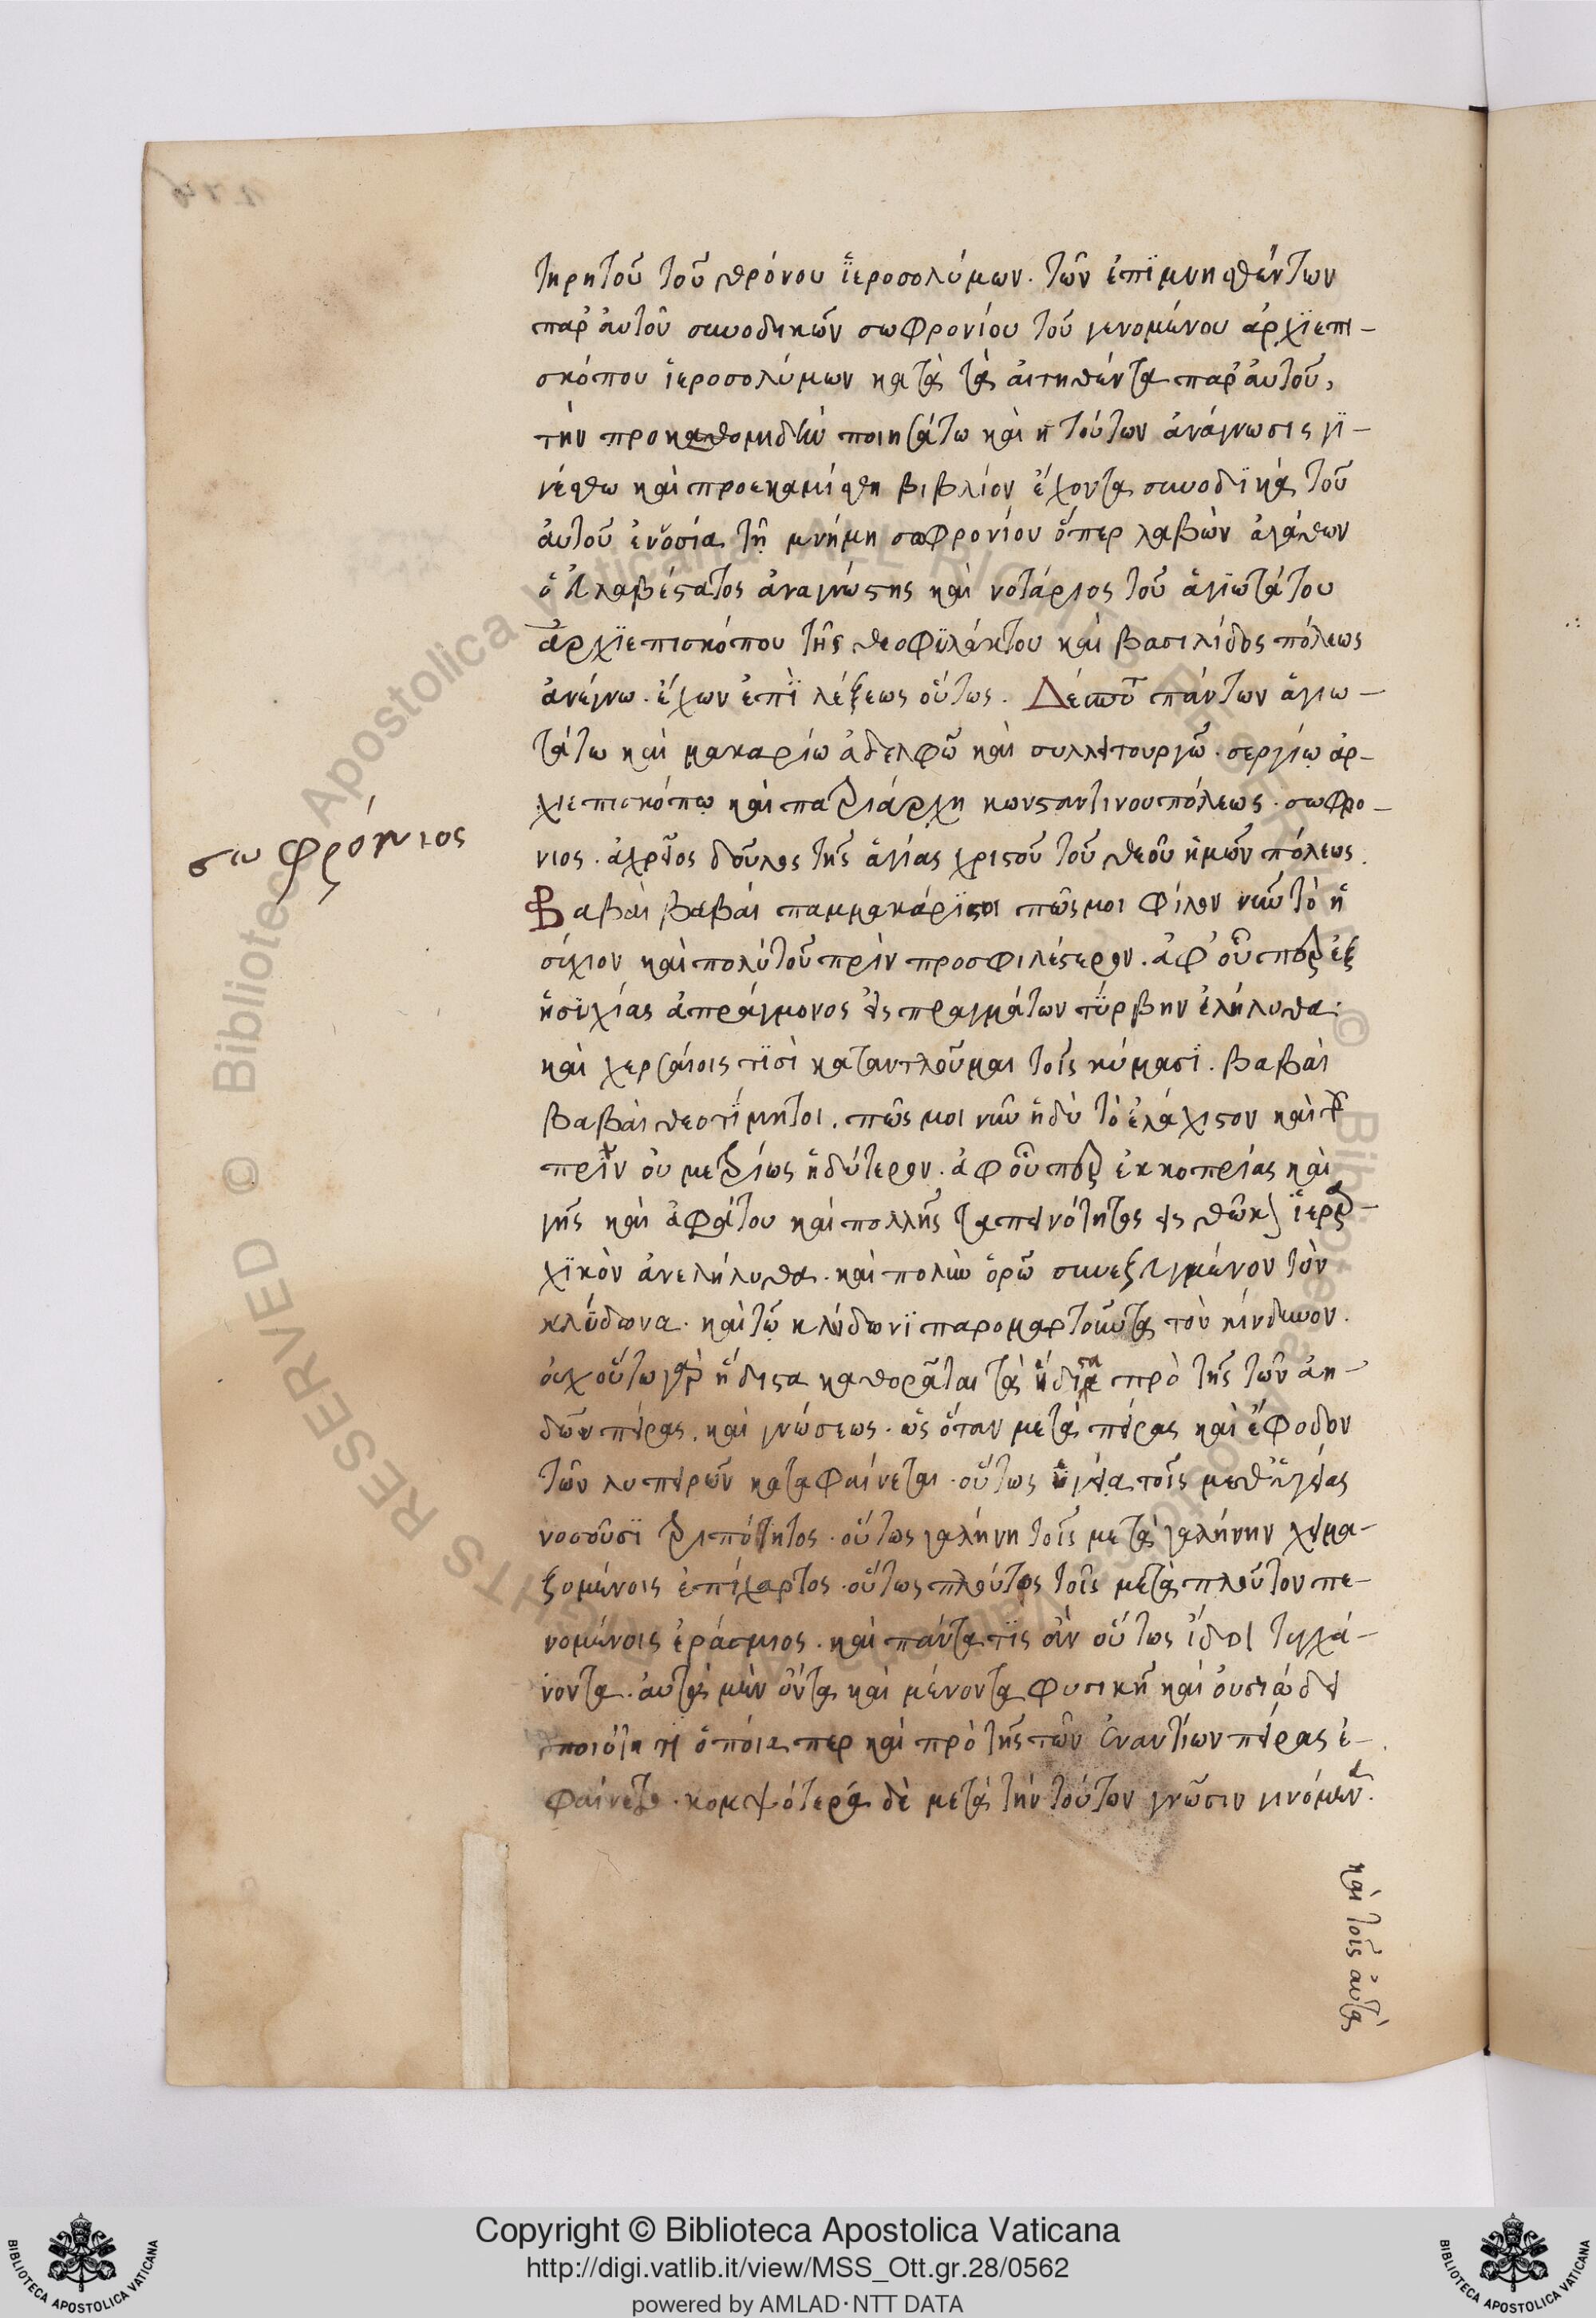 τηρητοῦ τοῦ θρόνου ἱεροσολύμων. τῶν ἐπϊμνησθέντων
παρ' ἀυτοῦ συνοδικῶν σωφρονίου τοῦ γενομένου ἀρχϊεπι-
σκόπου ἱεροσολύμων κατὰ τὰ ἀιτηθέντα παρ' ἀυτοῦ,
τὴν προκαθομιδὴν ποιησάτω καὶ ἡ τούτων ἀνάγνωσις γϊ-
νέσθω καὶ προεκομίσθη βιβλίον ἔχοντα συνοδϊκὰ τοῦ
ἀυτοῦ ἐν ὁσία τῆ μνήμη σωφρονίου ὅπερ λαβὼν ἀγάθων
ὁ ἐυλαβέστατος ἀναγνώστης καὶ νοτάριος τοῦ ἁγϊωτάτου
ἀρχϊεπισκόπου τῆς θεοφϋλάκτου καὶ βασιλίδος πόλεως
ἀνέγνω. ἔχων ἐπὶ λέξεως οὕτως. Δέσποτ πάντων ἁγιω-
τάτω καὶ μακαρίω ἀδελφῶ καὶ συλλειτουργῶ. σεργίω ἀρ-
χιεπισκόπω καὶ πατριάρχη κωνσταντινουπόλεως. σωφρο-
νιος. ἀχρεῖος δοῦλος τῆς ἁγίας χριστοῦ τοῦ θεοῦ ἡμῶν πόλεως.
Βαβαὶ βαβαὶ παμμακάριστοι πῶς μοι φίλον νῦν τὸ ἡ
σύχιον καὶ πολὺ τοῦ πρὶν προσφιλέστερον. ἀφ' οὗπερ ἐξ
ἡσϋχίας ἀπράγμονος εἰς πραγμάτων τύρβην ἐλήλυθα·
καὶ χερσαίοις τϊσὶ καταντλοῦμαι τοῖς κύμασϊ. βαβαὶ
βαβαὶ θεοτίμητοι. πῶς μοι νῦν ἡδὺ τὸ ἐλάχιστον καὶ τοῦ
πρὶν ὀυ μετρίως ἡδύτερον. ἀφ οὗπερ ἐκ κοπρίας καὶ
γῆς καὶ ἀφάτου καὶ πολλῆς ταπεινότητος εἰς θῶκον ἱεραρ-
χϊκὸν ἀνελήλυθα. καὶ πολὺν ὁρῶ συνεζευγμένον τὸν
κλύδωνα. καὶ τῶ κλύδωνϊ παρομαρτοῦντα τὸν κίνδυνον.
ὀυχ οὕτω γὰρ ἥδιστα καθορᾶται τὰ ἥδιστα πρὸ τῆς τῶν ἀη-
δῶν πείρας. καὶ γνώσεως. ὡς ὅταν μετὰ πείρας καὶ ἔφοδον
τῶν λυπηρῶν καταφαίνεται. οὕτως ὑγιεία τοῖς μεθ' ὑγείας
νοσοῦσϊ τριπόθητος. οὕτως γαλήνη τοῖς μετὰ γαλήνην χειμα-
ζομένοις ἐπίχαρτος. οὕτως πλοῦτος τοῖς μετὰ πλοῦτον πε-
νομένοις ἐράσμιος. καὶ πάντα τϊς ἂν οὕτως ἴδοι τυγχά-
νοντα. ἀυτὰ μὲν ὄντα καὶ μένοντα φυσικῆ καὶ ὀυσιώδει
ποιότητι ὁποία περ καὶ πρὸ τῆς τῶν ἐναντίων πείρας ἐ-
φαίνετο. κομψότερα δὲ μετὰ τὴν τούτων γνῶσιν γινόμενα.
καὶ τοῖς ἀυτὰ
σωφρόνιος
Copyright © Biblioteca Apostolica Vaticana
http://digi.vatlib.it/view/MSS_Ott.gr.28/0562
powered by AMLAD·NTT DATA
BIBLIOTECA APOSTOLICA VATICANA
BIBLIOTECA APOSTOLICA VATICANA